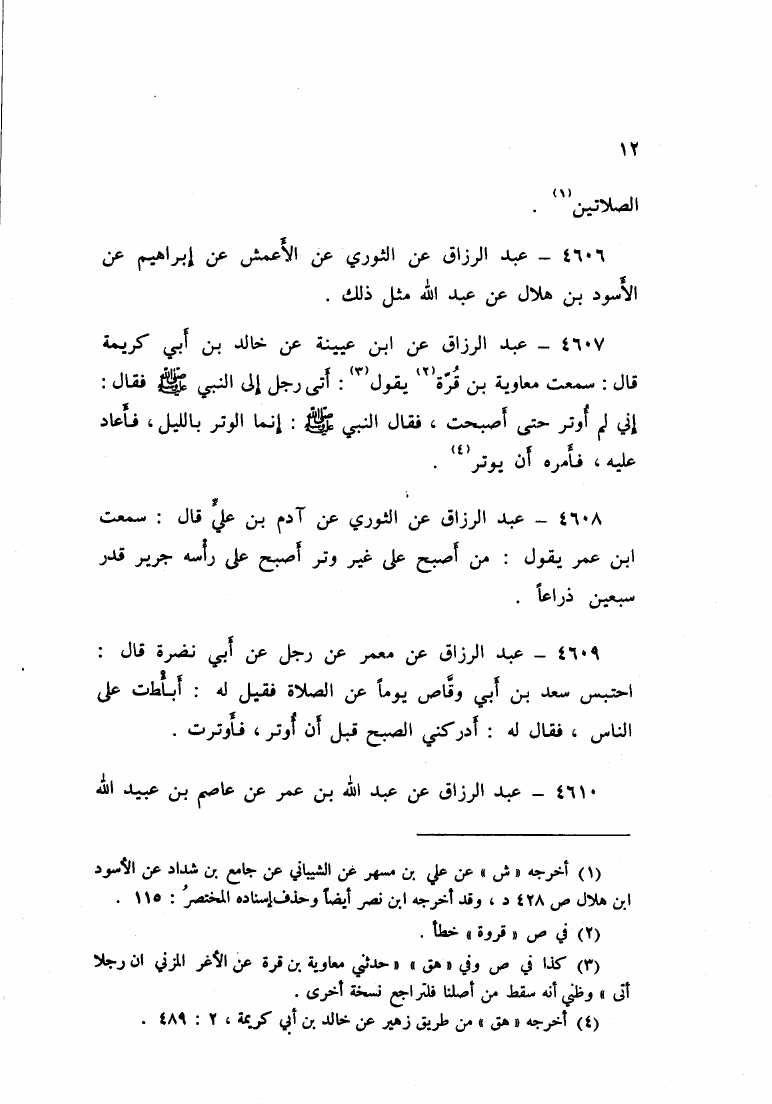 ١٢
الصلاتين(١) .
٤٦٠٦ – عبد الرزاق عن الثوري عن الأَعمش عن إبراهيم عن
الأَسود بن هلال عن عبد الله مثل ذلك .
٤٦٠٧ – عبد الرزاق عن ابن عيينة عن خالد بن أَبي كريمة
قال : سمعت معاوية بن قُرّة(٢) يقول(٣) : أَتى رجل إلى النبي ﷺ فقال :
إني لم أُوتر حتى أَصبحت ، فقال النبي ﷺ : إنما الوتر بالليل ، فأَعاد
عليه ، فأَمره أَن يوتر(٤) .
٤٦٠٨ – عبد الرزاق عن الثوري عن آدم بن عليٍّ قال : سمعت
ابن عمر يقول : من أَصبح على غير وتر أَصبح على رأسه جرير قدر
سبعين ذراعاً .
٤٦٠٩ – عبد الرزاق عن معمر عن رجل عن أَبي نضرة قال :
احتبس سعد بن أَبي وقَّاص يوماً عن الصلاة فقيل له : أَبطأت على
الناس ، فقال له : أَدركني الصبح قبل أَن أُوتر ، فأَوترت .
٤٦١٠ – عبد الرزاق عن عبد الله بن عمر عن عاصم بن عبيد الله
(١) أخرجه « ش » عن علي بن مسهر عن الشيباني عن جامع بن شداد عن الأسود
ابن هلال ص ٤٢٨ د ، وقد أخرجه ابن نصر أيضاً وحذف إسناده المختصر : ١١٥ .
(٢) في ص « قروة » خطأ .
(٣) كذا في ص وفي « هق » « حدثني معاوية بن قرة عن الأغر المزني ان رجلا
أتى » وظني أنه سقط من أصلنا فلتراجع نسخة أخرى .
(٤) أخرجه « هق » من طريق زهير عن خالد بن أبي كريمة ، ٢ : ٤٨٩ .